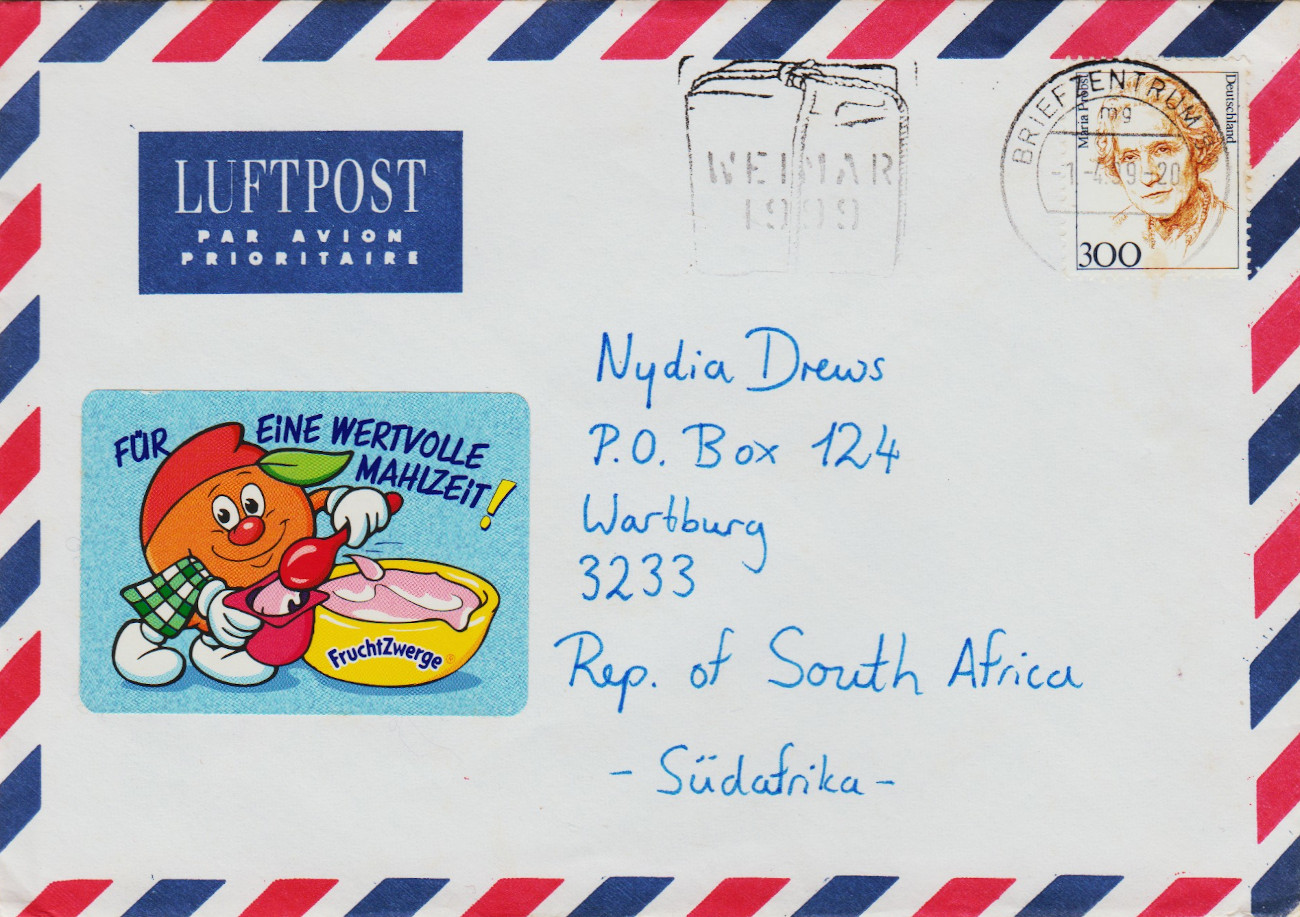 LUFTPOST
PAR AVION
PRIORITAIRE
WEIMAR
1999
BRIEFZENTRUM
mg
Maria Probst
Deutschland
300
FÜR EiNE WERTVOLLE
MAHLZEiT!
FruchtZwerge
Nydia Drews
P.O. Box 124
Wartburg
3233
Rep. of South Africa
- Südafrika -